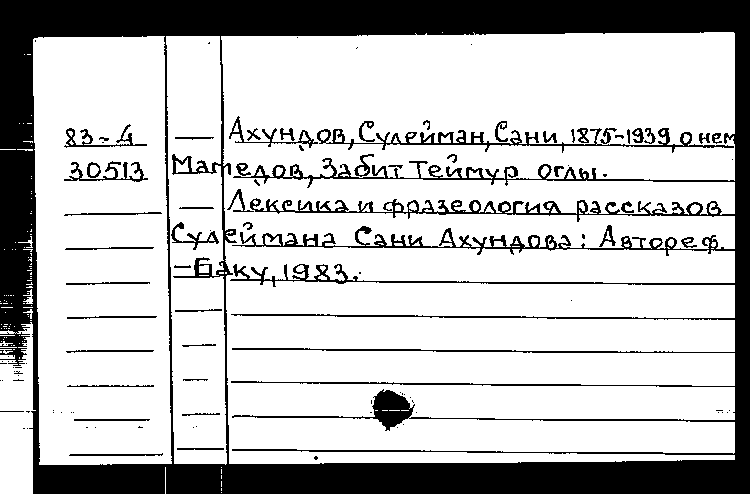 83-4 — Ахундов, Сулейман, Сани, 1875-1939, о нем
30513 Мамедов, Забит Теймур оглы.
— Лексика и фразеология рассказов
Сулеймана Сани Ахундова: Автореф.
— Баку, 1983.